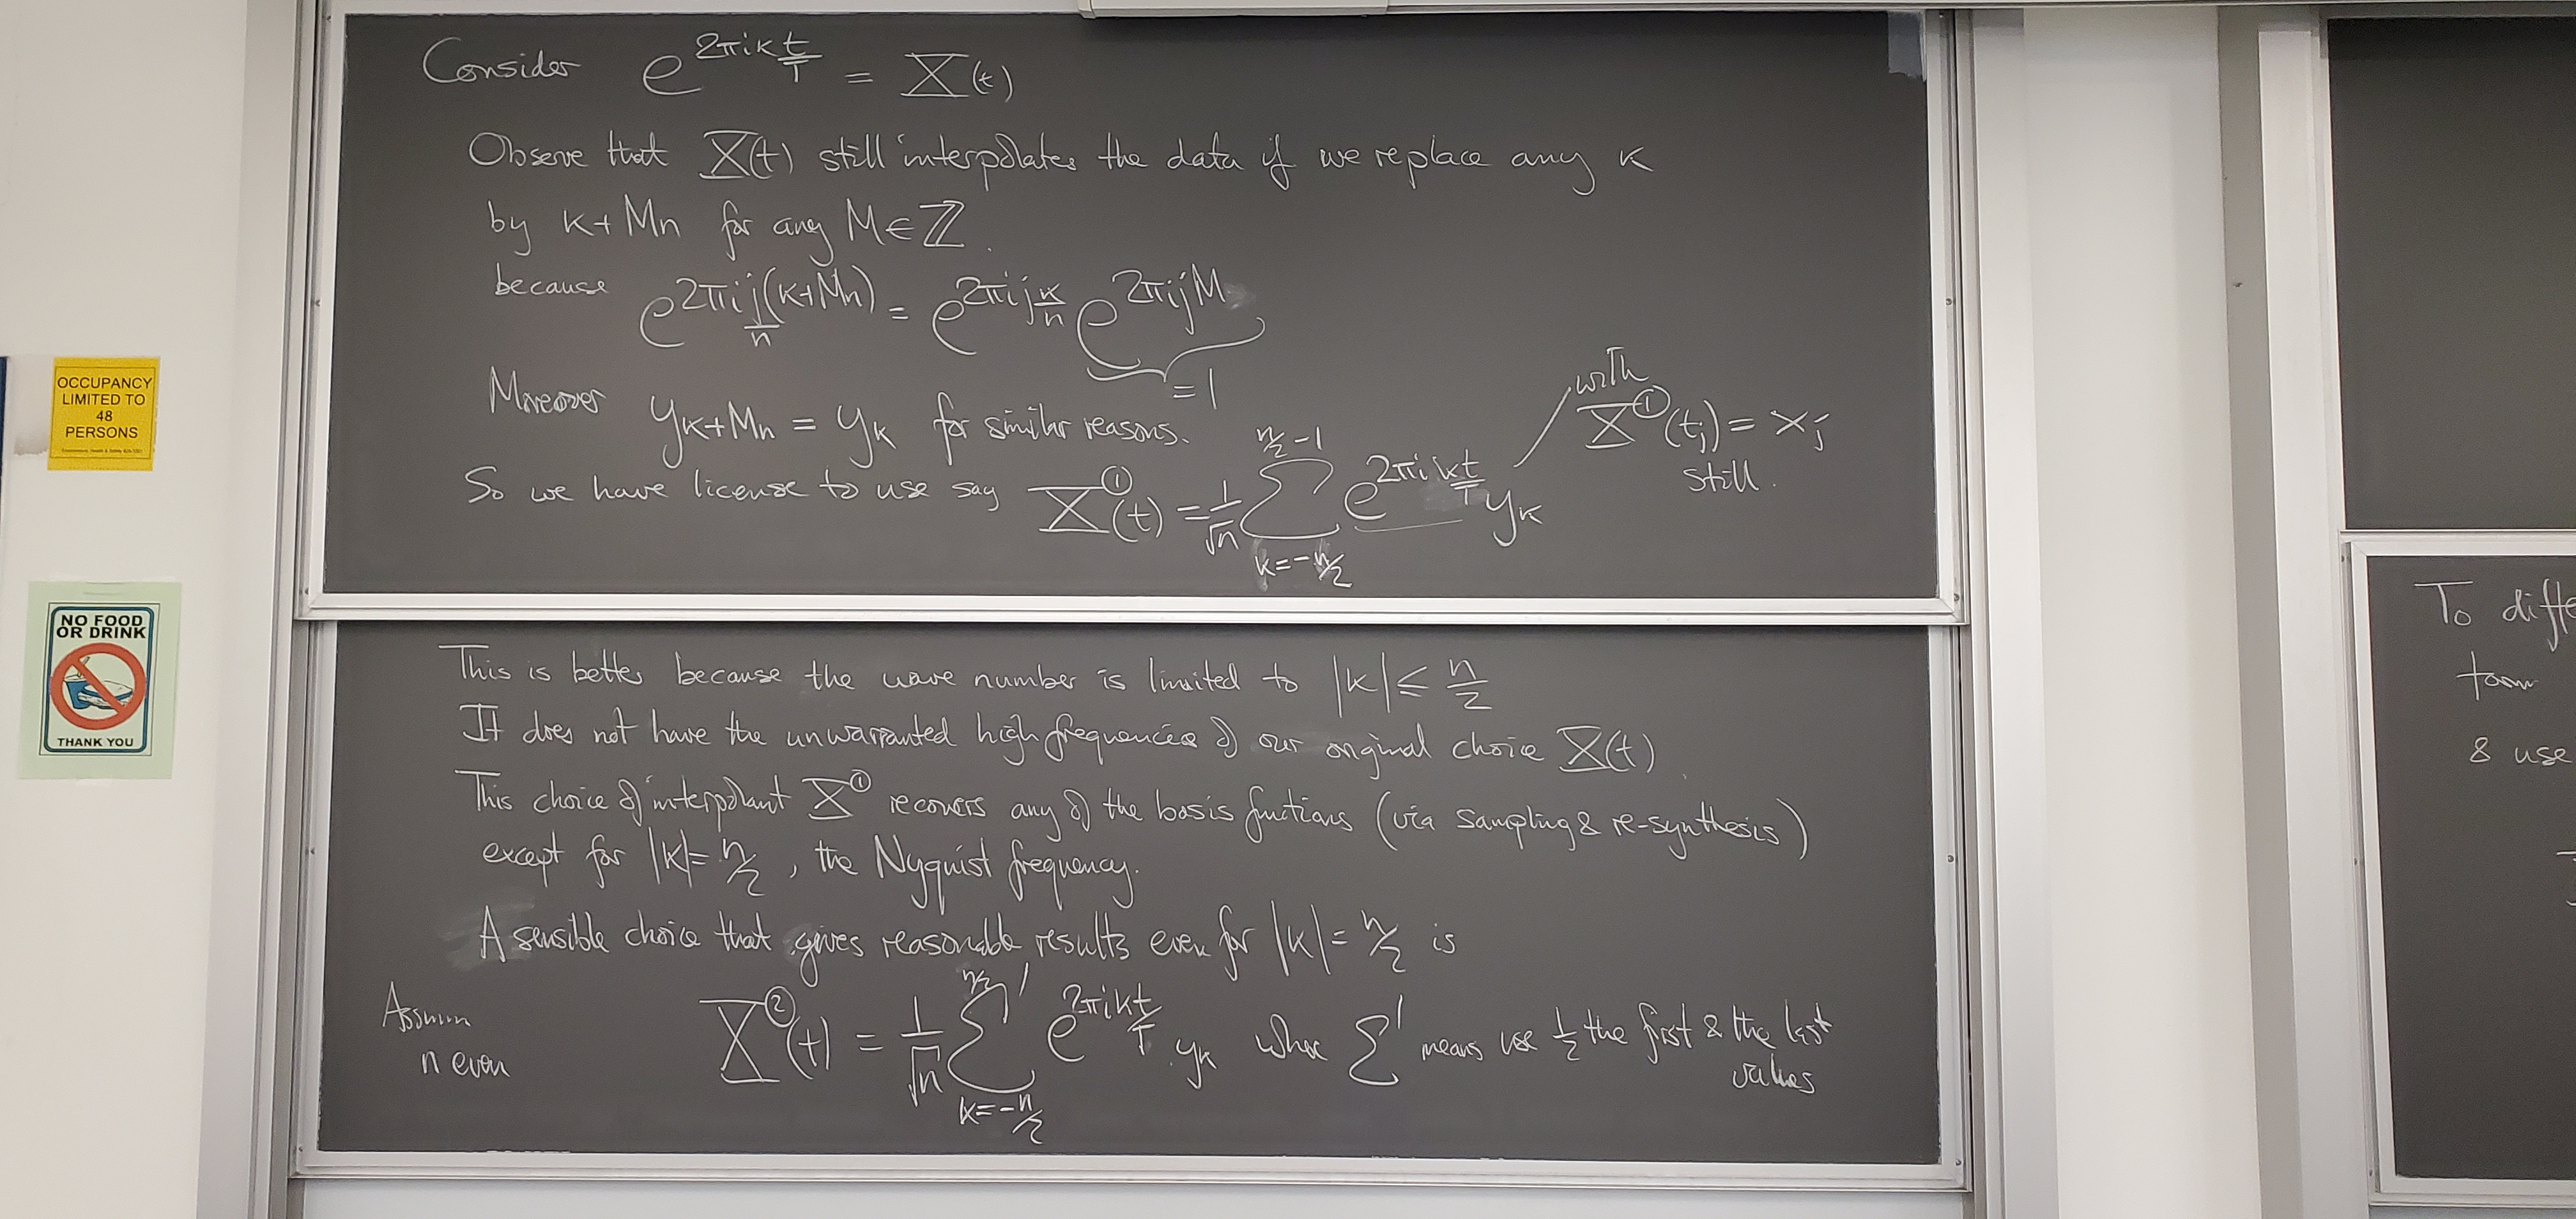 Consider e^{2πik t/T} = X(t)
Observe that X(t) still interpolates the data if we replace any k
by k+Mn for any M∈ℤ.
because e^{2πi j/n (k+Mn)} = e^{2πij k/n} e^{2πijM}
= 1
Moreover y_{k+Mn} = y_k for similar reasons.
with
X^①(t_j) = x_j
still.
So we have license to use say X^①(t) = 1/√n ∑_{k=-n/2}^{n/2-1} e^{2πi kt/T} y_k
This is better because the wave number is limited to |k| ≤ n/2
It does not have the unwarranted high frequencies of our original choice X(t).
This choice of interpolant X^① recovers any of the basis functions (via sampling & re-synthesis)
except for |k| = n/2, the Nyquist frequency.
A sensible choice that gives reasonable results even for |k| = n/2 is
Assum
n even
X^②(t) = 1/√n ∑'_{k=-n/2}^{n/2} e^{2πikt/T} y_k where ∑' means use ½ the first & the last
values
OCCUPANCY
LIMITED TO
48
PERSONS
NO FOOD
OR DRINK
THANK YOU
To diffe
& use